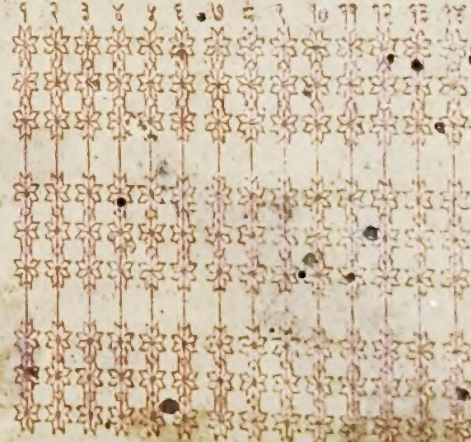 १ २ ३ ४ ५ ६ ७ ८ ९ १० ११ १२ १३ १४